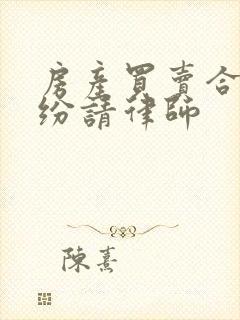 房產買賣合
紛請律師
陳熹